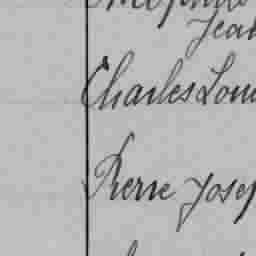 Jea
Charles Lou
Pierre Josep